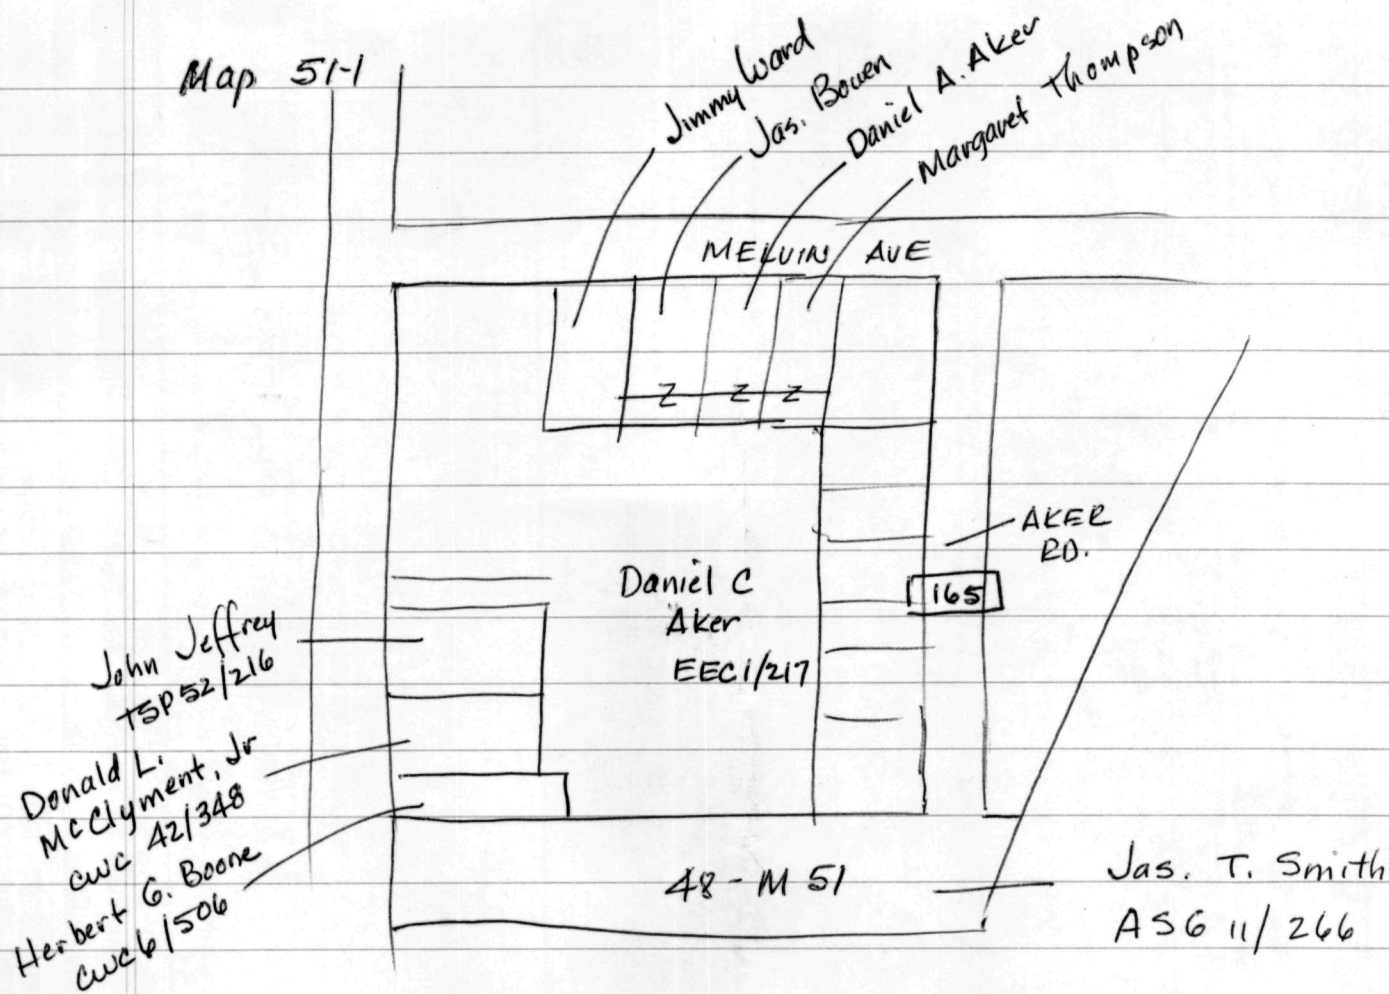 Map 51-1
Jimmy Ward
Jas. Bowen
Daniel A. Aker
Margaret Thompson
MELVIN AVE
Z Z Z
AKER
RD.
165
Daniel C
Aker
EEC1/217
John Jeffrey
TSP 52/216
Donald L.
McClyment, Jr
CWC 42/348
Herbert G. Boone
CWC 6/506
48-M 51
Jas. T. Smith
ASG 11/266